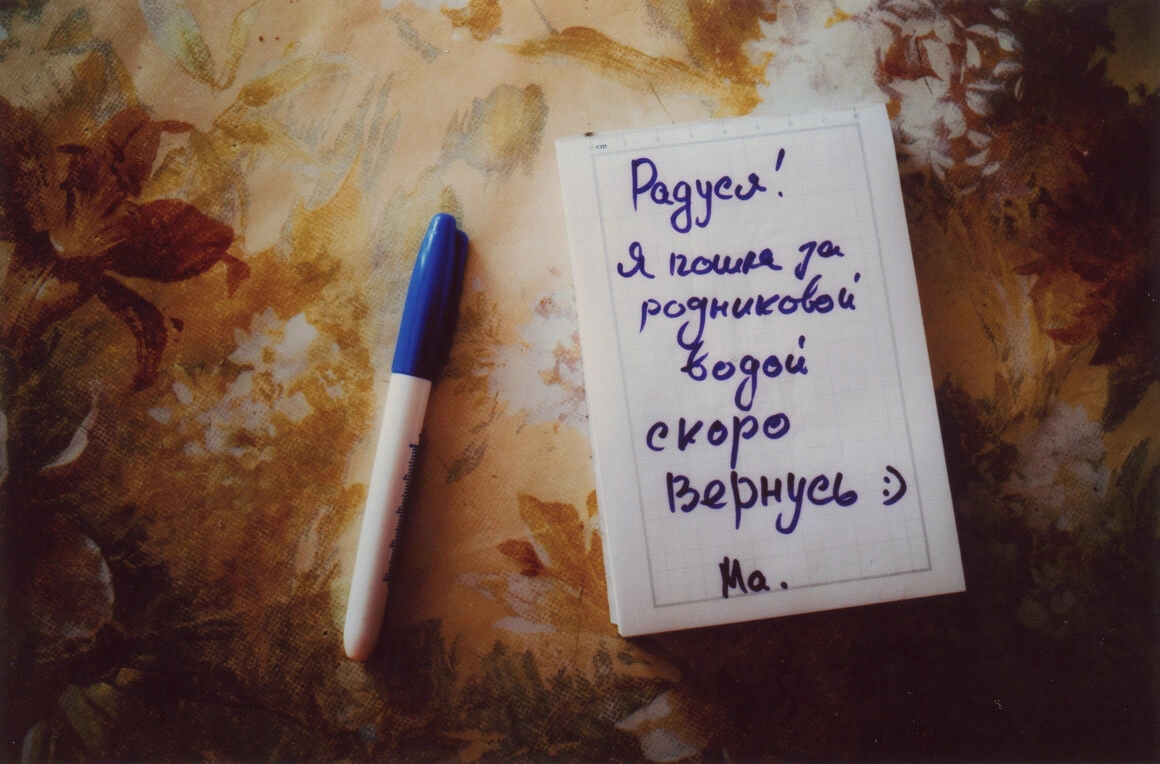 0 cm 1 2 3 4 5 6 7 8
Радуся!
Я пошла за
родниковой
водой
скоро
Вернусь :)
Ма.